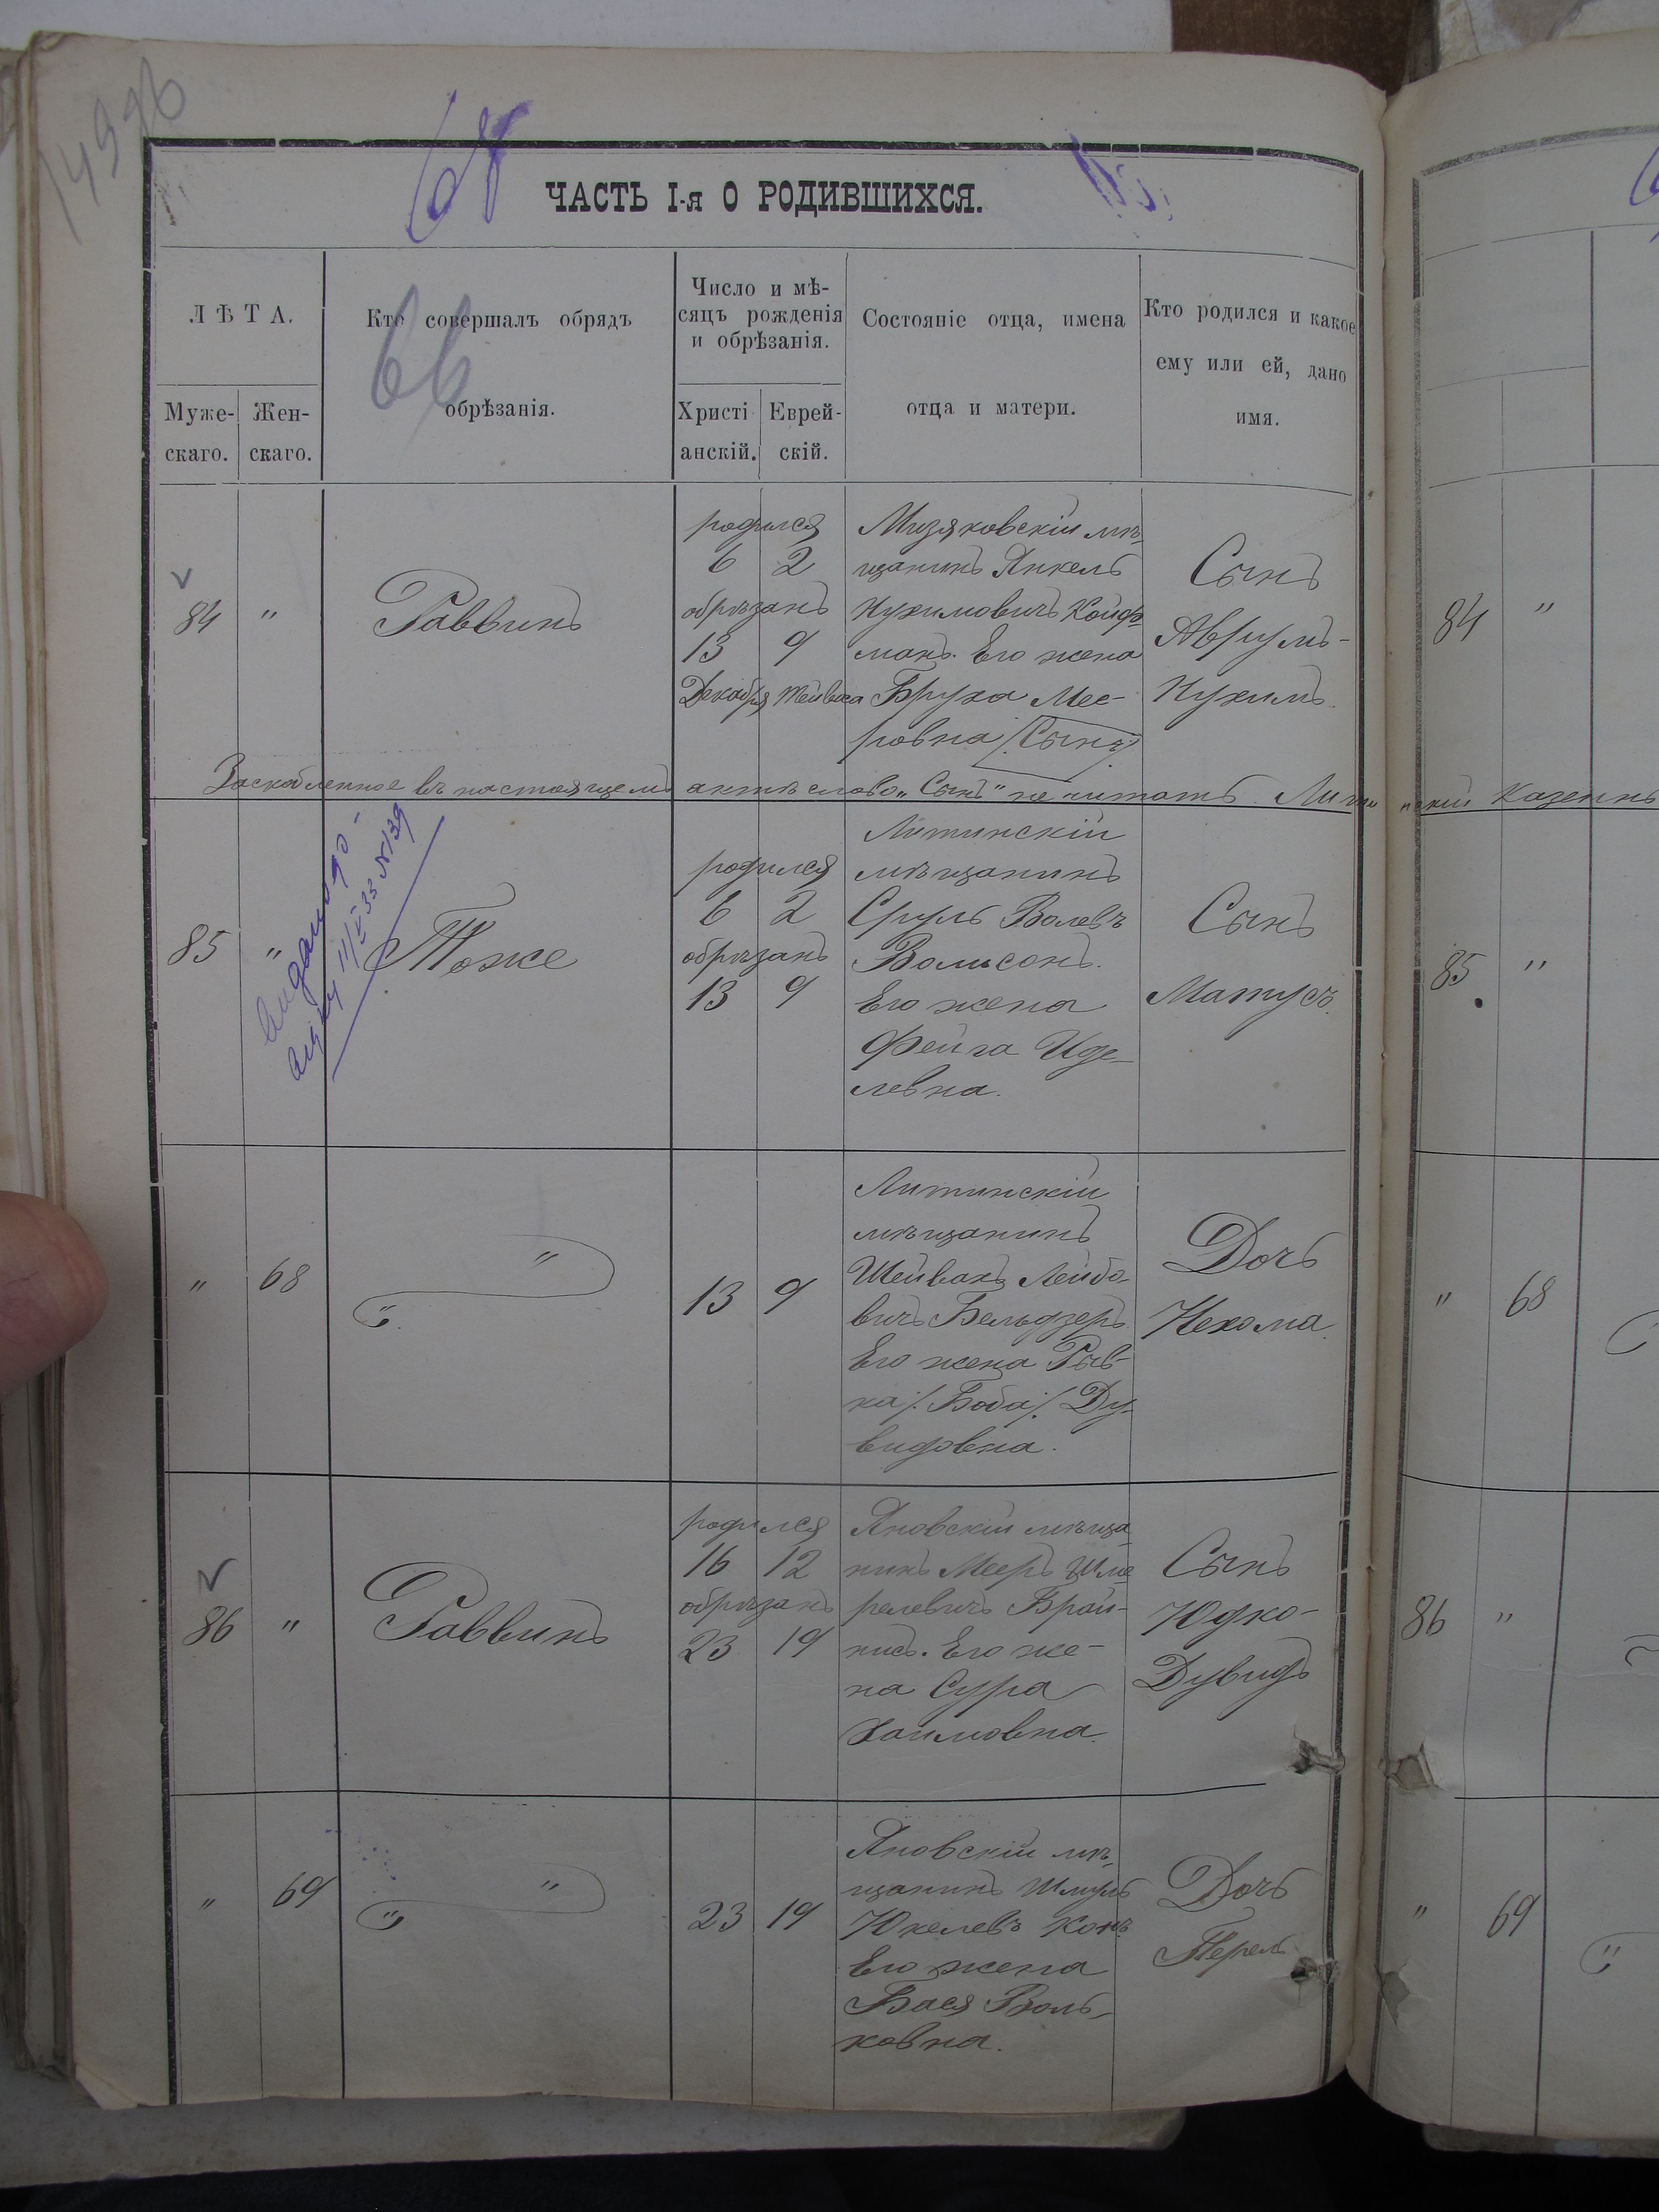 14996
68
ЧАСТЬ I-я О РОДИВШИХСЯ.
66
ЛѢТА.
Муже-
скаго.
Жен-
скаго.
Кто совершалъ обрядъ
обрѣзанія.
Число и мѣ-
сяцъ рожденія
и обрѣзанія.
Христі
анскій.
Еврей-
скій.
Состояніе отца, имена
отца и матери.
Кто родился и какое
ему или ей, дано
имя.
84 "
Раввинъ
родился
6 2
обрѣзанъ
13 9
Декабря Тейвеса
Мизяковскій мѣ-
щанинъ Янкель
Нухимовичъ Койф-
манъ. Его жена
Бруха Мее-
ровна (Сынъ)
Сынъ
Аврумъ-
Нухимъ.
Заскобленное въ настоящемъ актѣ слово "Сынъ" не читать. Литинскій Казенн
85 "
Тоже
родился
6 2
обрѣзанъ
13 9
Литинскій
мѣщанинъ
Сруль Волевъ
Вольсонъ.
Его жена
Фейга Иде-
левна.
Сынъ
Матусъ.
" 68
" "
13 9
Литинскій
мѣщанинъ
Шейвахъ Лейбо-
вичъ Бельдзеръ
Его жена Рыв-
ка /:Боба:/ Ду-
видовна.
Дочь
Нехома.
86 "
Раввинъ
родился
16 12
обрѣзанъ
23 19
Яновскій мѣща
нинъ Мееръ Шме
релевичъ Брай-
нисъ. Его же-
на Сура
Хаимовна.
Сынъ
Юдко-
Дувидъ
" 69
" "
23 19
Яновскій мѣ-
щанинъ Шмуль
Юкелевъ Конъ
Его жена
Бася Воль-
ковна.
Дочь
Перель
84 "
85 "
" 68
86 "
" 69